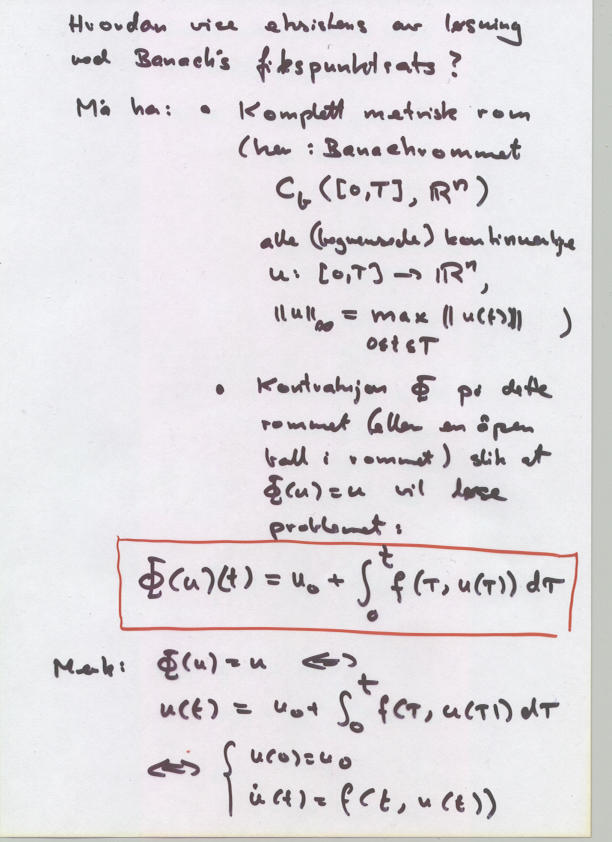 Hvordan vise eksistens av løsning
ved Banach's fikspunktsats?
Må ha: • Komplett metrisk rom
(her: Banachrommet
C_b([0,T], ℝⁿ)
alle (begrensede) kontinuerlige
u: [0,T] → ℝⁿ,
||u||_∞ = max ||u(t)|| )
0≤t≤T
• Kontraksjon Φ på dette
rommet (eller en åpen
ball i rommet) slik at
Φ(u)=u vil løse
problemet:
Φ(u)(t) = u₀ + ∫₀ᵗ f(τ, u(τ)) dτ
Merk: Φ(u) = u ⟺
u(t) = u₀ + ∫₀ᵗ f(τ, u(τ)) dτ
⟺ { u(0)=u₀
u̇(t) = f(t, u(t))